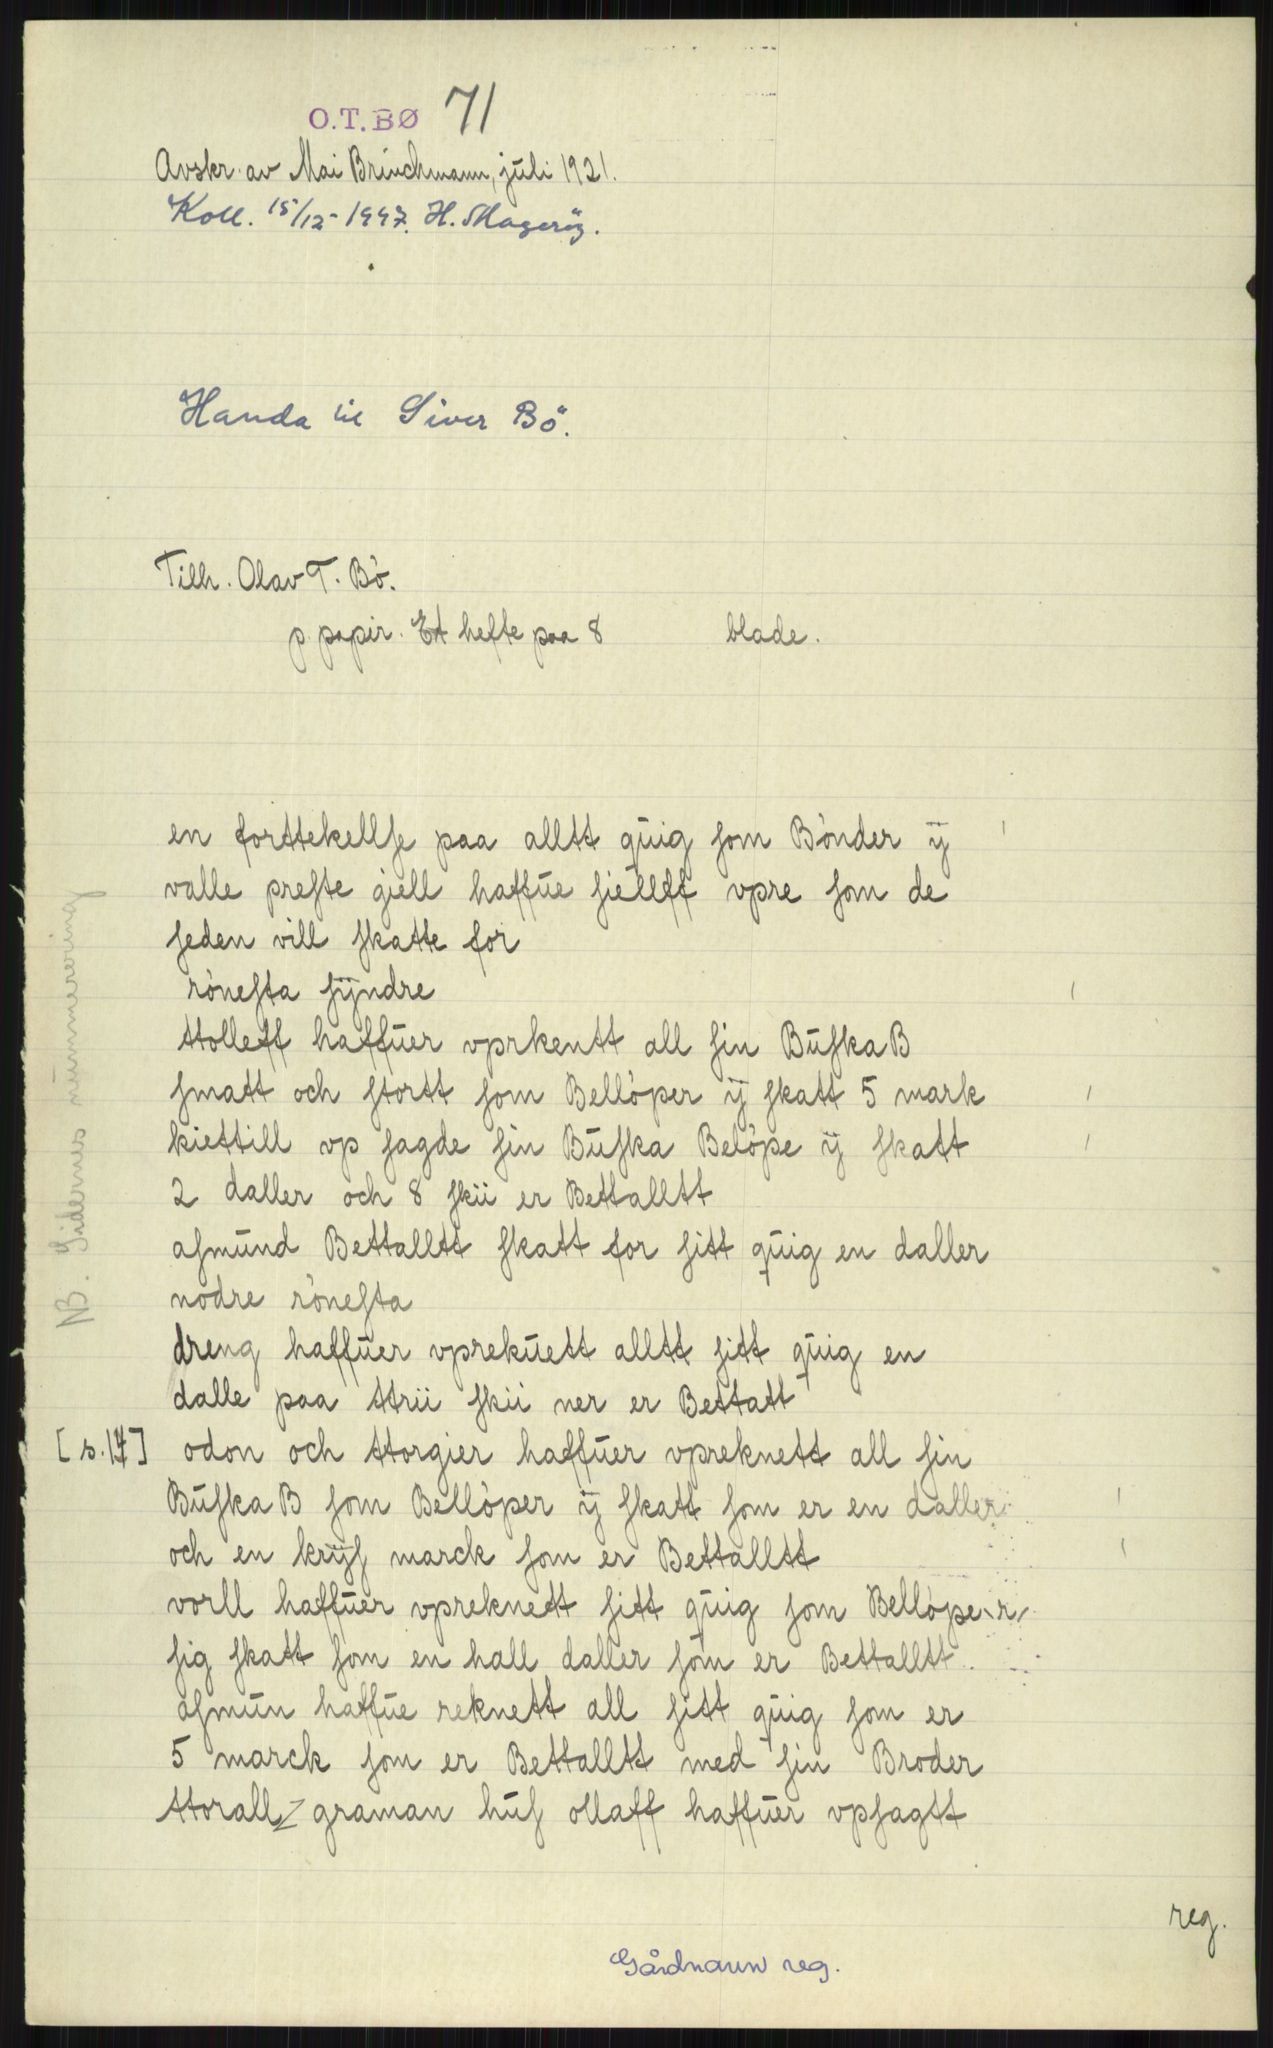 O.T.BØ 71
Avskr. av Mai Brinchmann, juli 1921.
Koll. 15/12-1947. H. Magerøy.
Handa til Siver Bö.
Tilh. Olav T. Bò.
p. papir. Et hefte paa 8 blade.
en forttekellſe paa alltt quig ſom Bònder ÿ
valle preſte giell haffue ſiellff vpre ſom de
ſeden vill ſkatte for
ròneſta ſÿndre
ttolleff haffuer vprkentt all ſin Buſka B
ſmatt och ſtortt ſom Bellòper ÿ ſkatt 5 mark
kiettill vp ſagde ſin Buſka Belòpe ÿ ſkatt
2 daller och 8 ſkii er Bettalltt
aſmund Bettalltt ſkatt for ſitt quig en daller
nodre ròneſta
dreng haffuer vprekuett alltt ſitt quig en
dalle paa ttrii ſkii ner er Bettatt
[s. 14] odon och ttorgier haffuer vpreknett all ſin
Buſka B ſom Bellòper ÿ ſkatt ſom er en daller
och en krÿſ marck ſom er Bettalltt
vorll haffuer vpreknett ſitt quig ſom Bellòper
ſig ſkatt ſom en hall daller ſom er Bettalltt
aſmun haffue reknett all ſitt quig ſom er
5 marck ſom er Bettalltt med ſin Broder
ttorall graman huſ ollaff haffuer vpſagtt
NB. Sidernes nummerering
reg.
Gårdnavn reg.